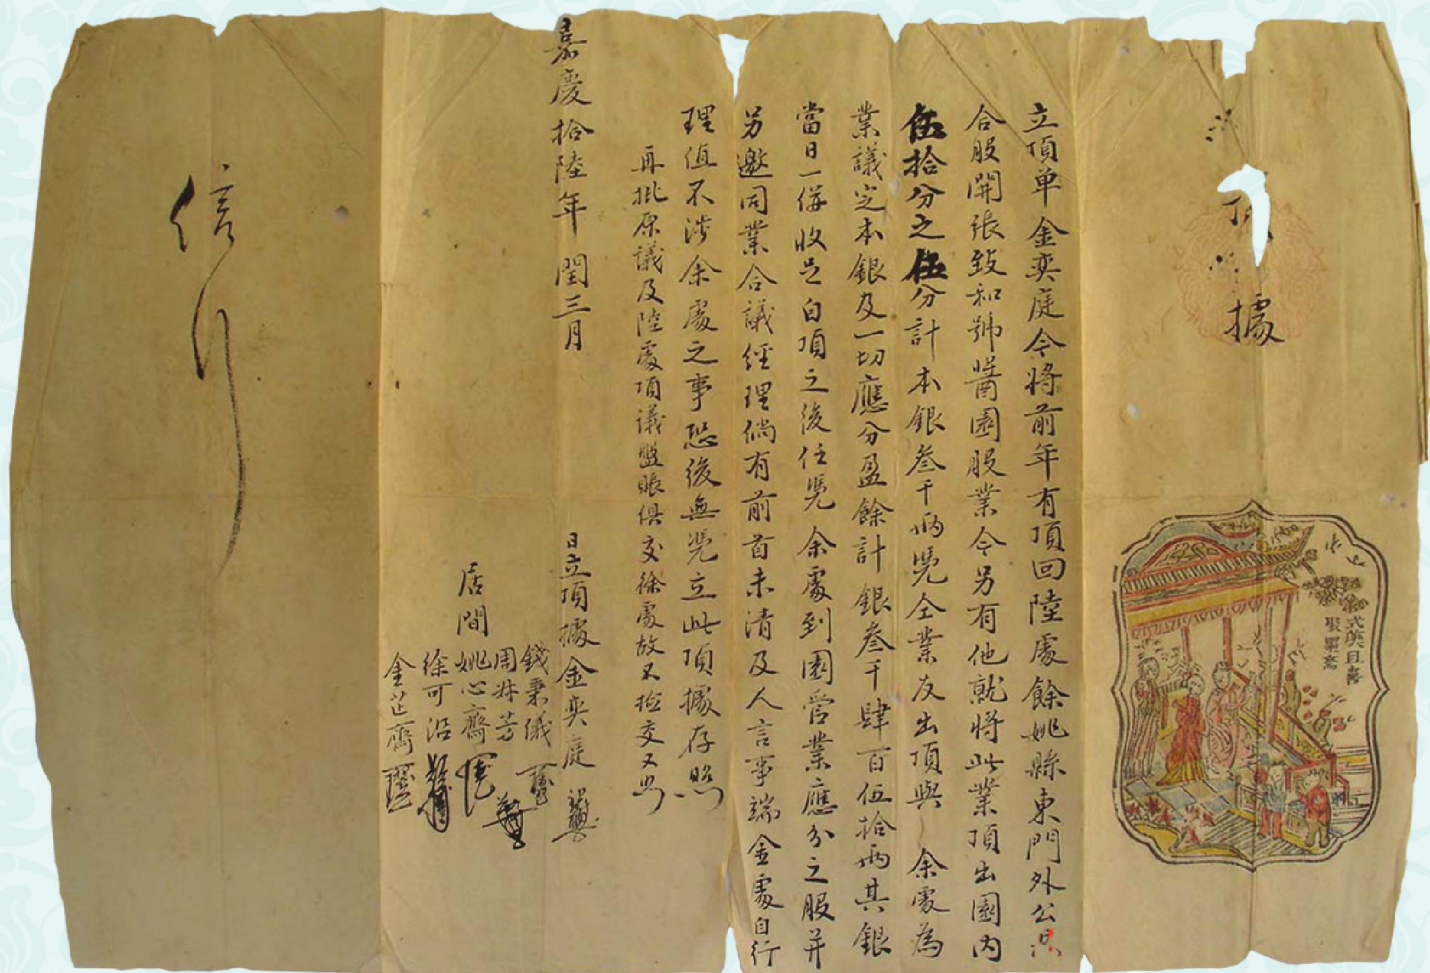 據
立頂单金奕庭今將前年有頂回陸處餘姚縣東門外公共
合股開張致和號醬園股業今另有他就將此業頂出園內
伍拾分之伍分計本銀叁千兩凭仝業友出頂與余處為
業議定本銀及一切應分盈餘計銀叁千肆百伍拾兩其銀
當日一併收足自頂之後任凭余處到園管業應分之股并
另邀同業合議經理倘有前首未清及人言事端金處自行
理值不涉余處之事恐後無凭立此頂據存照
再批原議及陸處頂議盤賬俱交徐處故不撿交又照
嘉慶拾陸年閏三月 日立頂據金奕庭
錢秉儀
周
居間 姚心齋
徐可沿
金芷齋
信行